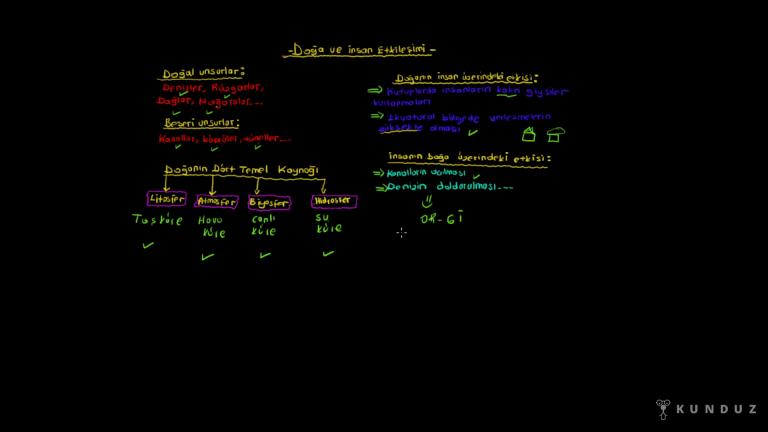 -Doğa ve insan Etkileşimi-
Doğal unsurlar:
Denizler, Rüzgarlar,
Dağlar, Mağaralar....
Beşeri unsurlar:
Kanallar, köprüler, tüneller....
Doğanın Dört Temel Kaynağı
Litosfer Atmosfer Biyosfer Hidrosfer
Taşküre Hava Canlı Su
küre küre küre
Doğanın insan üzerindeki etkisi:
⇒ Kutuplarda insanların kalın giysiler
kullanmaları
⇒ Ekvatoral bölgede yerleşmelerin
yüksekte olması
insanın Doğa üzerindeki etkisi:
⇒ Kanalların açılması
⇒ Denizin doldurulması....
OR-Gİ
KUNDUZ